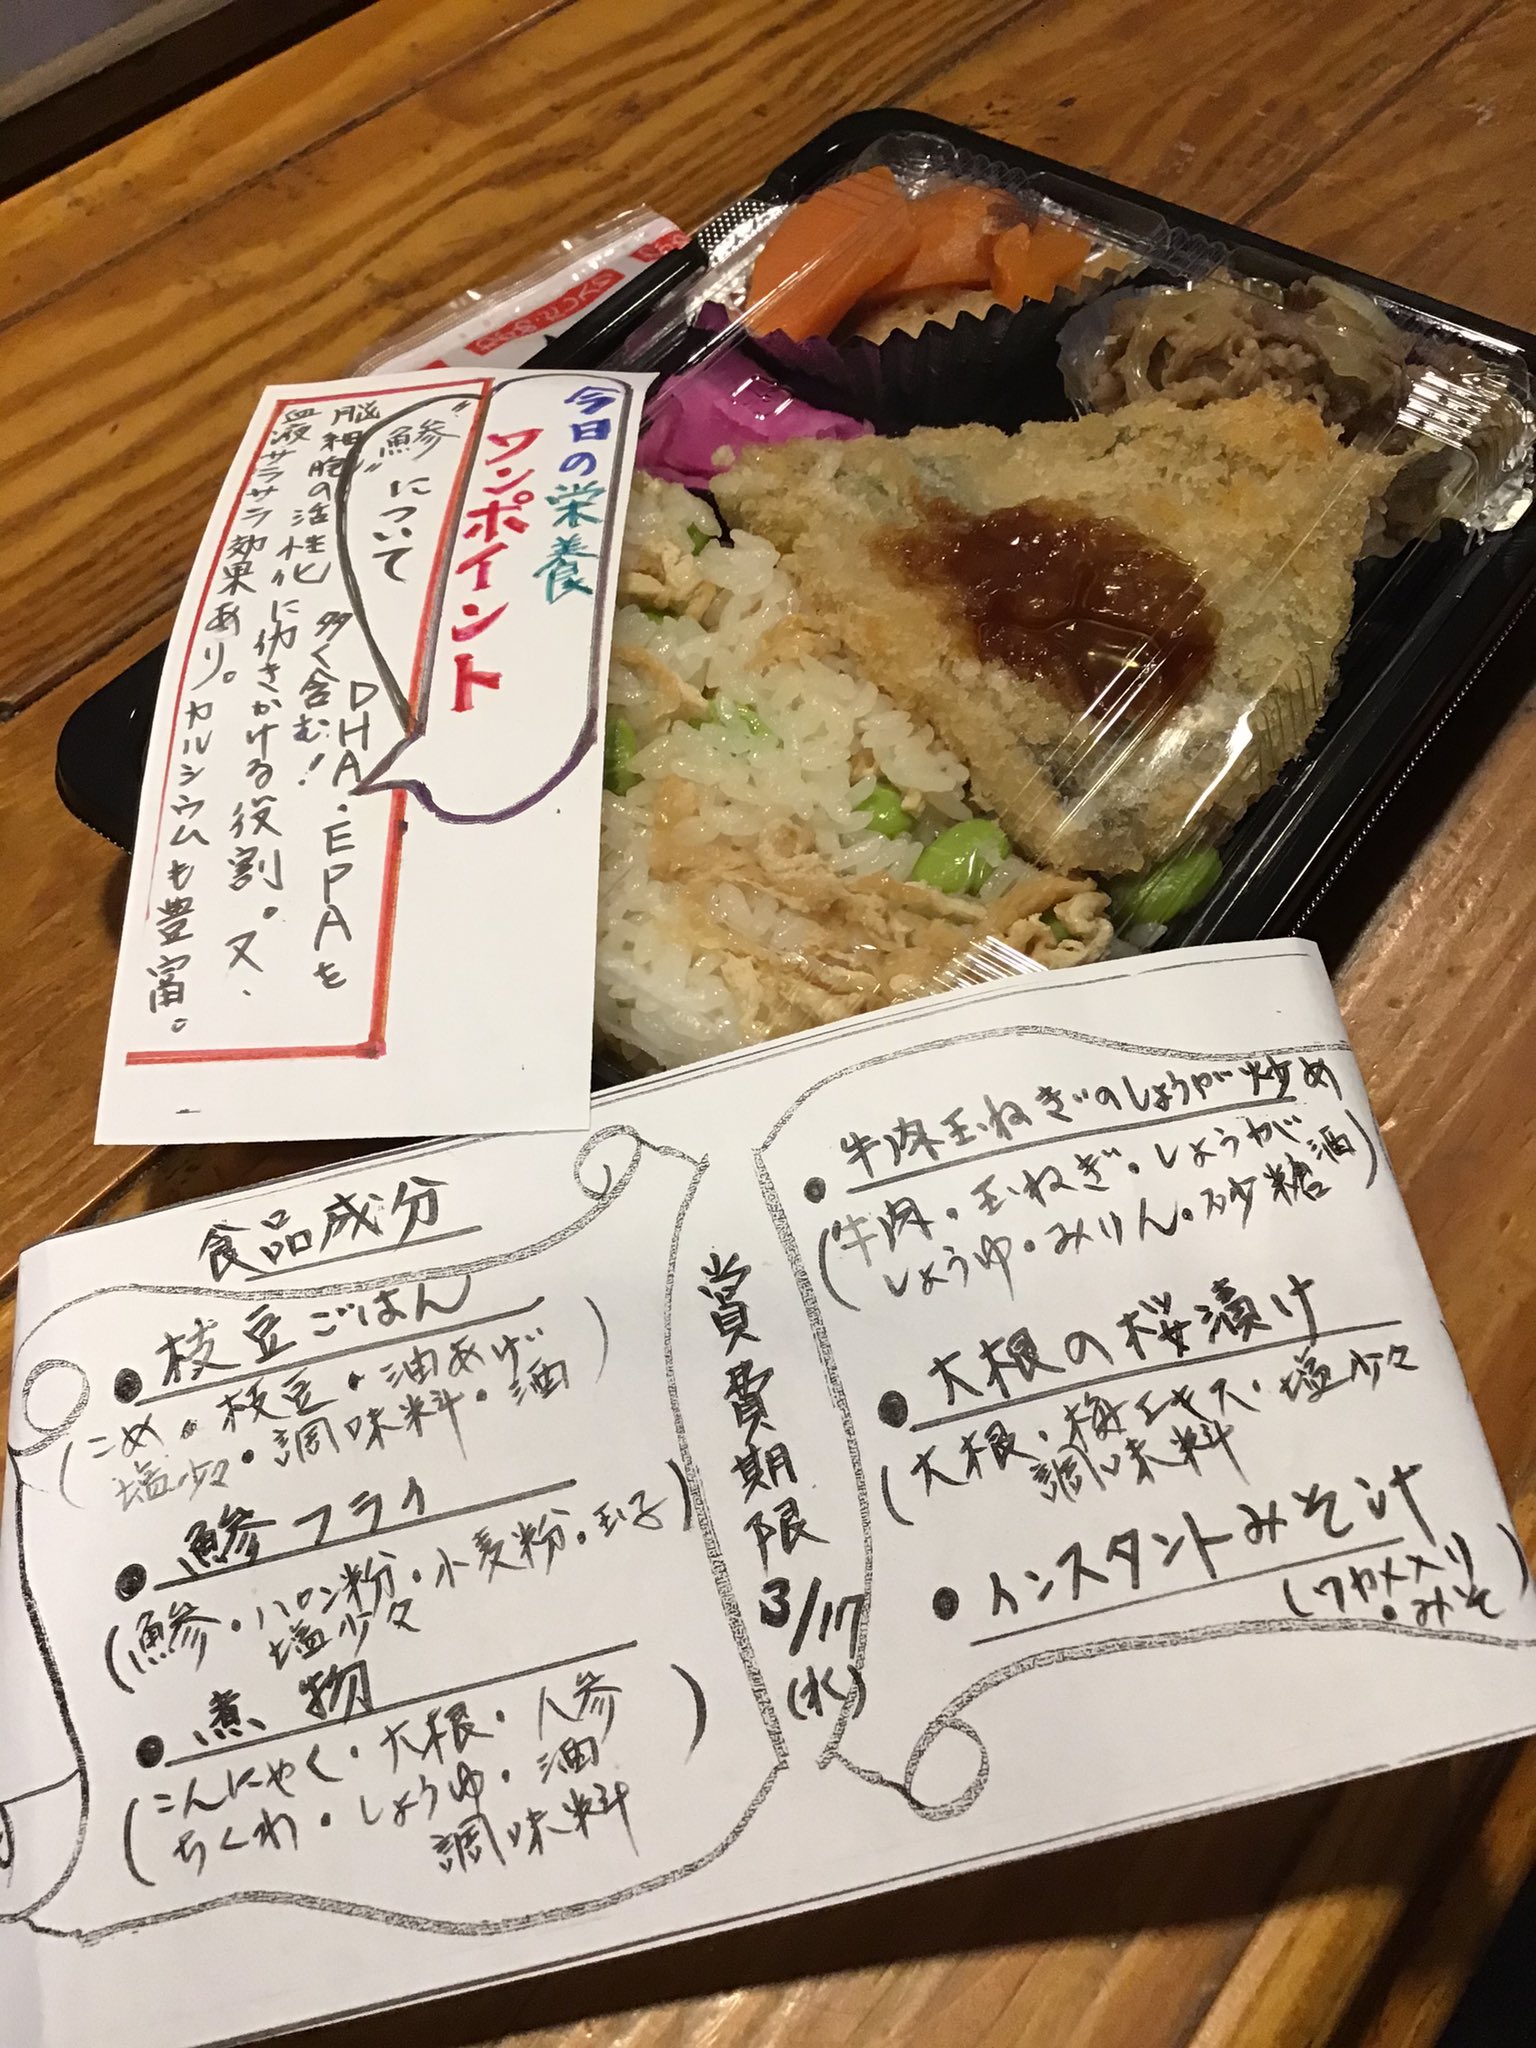 今日の栄養
ワンポイント
"鯵"について
DHA・EPAを
多く含む!
脳細胞の活性化に働きかける役割。又、
血液サラサラ効果あり。カルシウムも豊富。
食品成分
●枝豆ごはん
(こめ・枝豆・油あげ
塩少々・調味料・酒)
●鯵フライ
(鯵・パン粉・小麦粉・玉子
塩少々)
●煮物
(こんにゃく・大根・人参
ちくわ・しょうゆ・酒
調味料)
賞費期限
3/17
(水)
●牛肉玉ねぎのしょうが炒め
(牛肉・玉ねぎ・しょうが
しょうゆ・みりん・砂糖酒)
●大根の桜漬け
(大根・梅エキス・塩少々
調味料
●インスタントみそ汁
(ワカメ入り
・みそ)